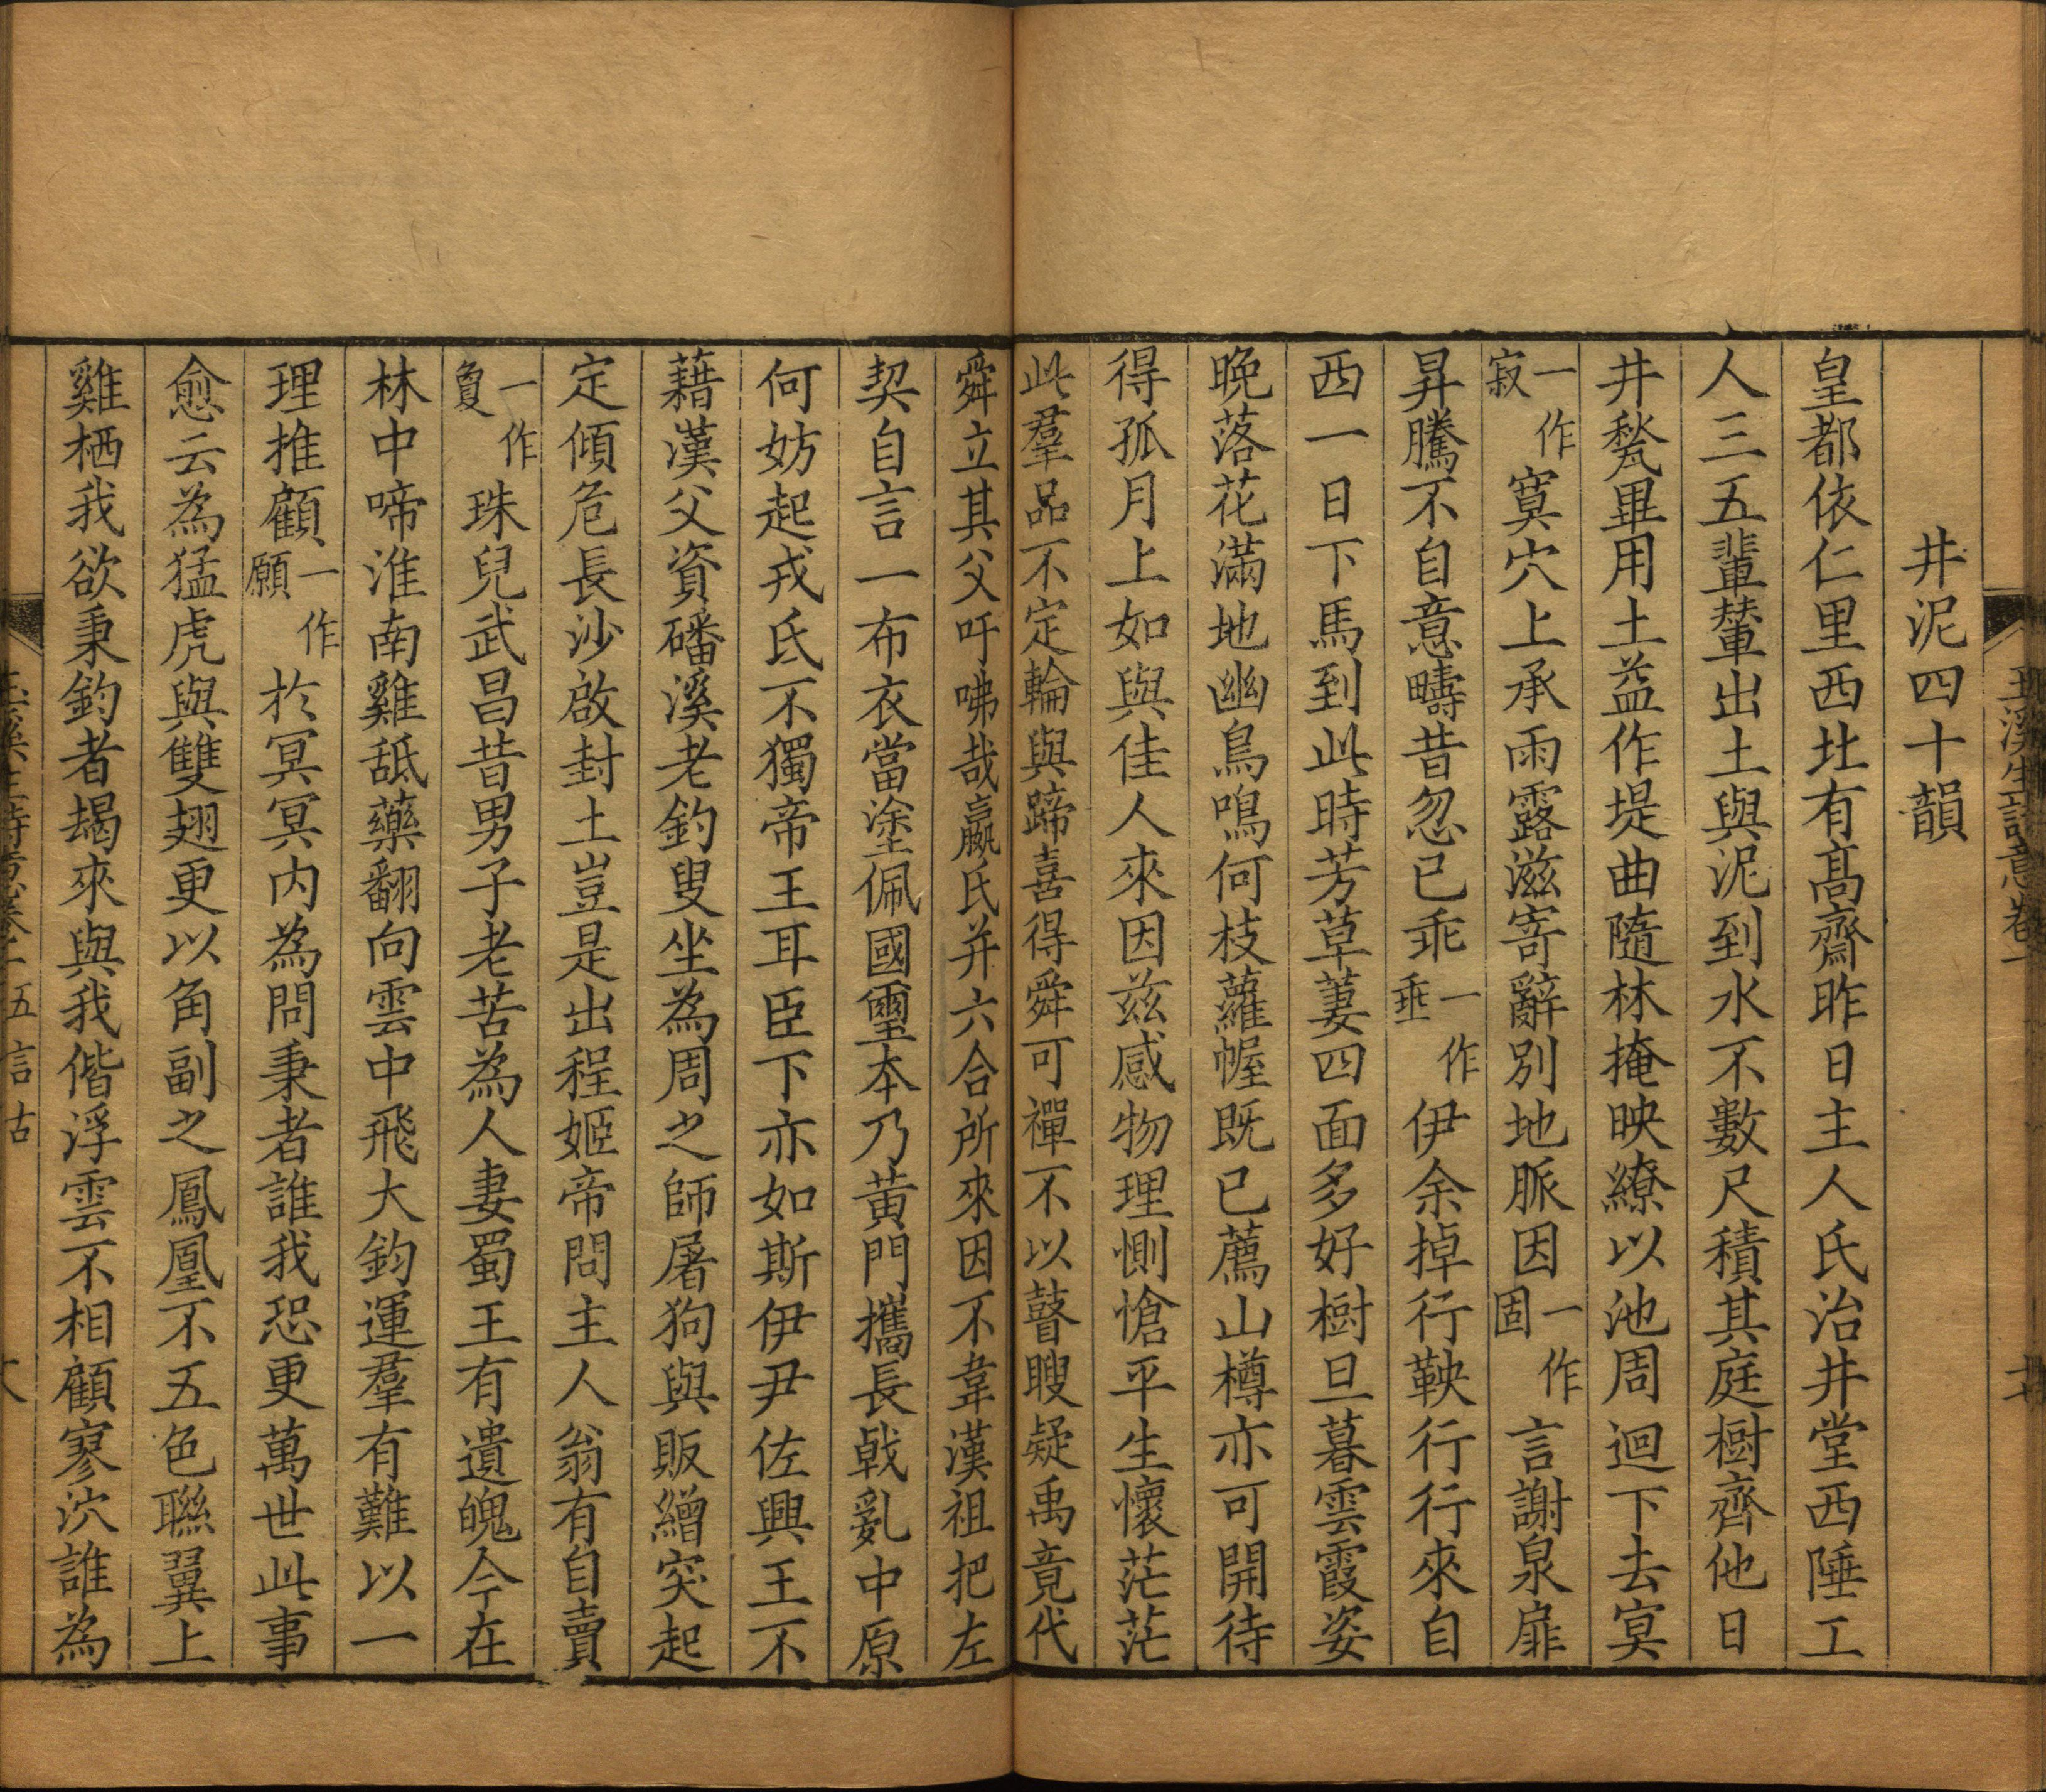 井泥四十韻
皇都依仁里西北有高齋昨日主人氏治井堂西陲工
人三五輩輦出土與泥到水不數尺積其庭樹齊他日
井甃畢用土益作堤曲隨林掩映繚以池周迴下去冥
一作寂寞穴上承雨露滋寄辭別地脈因一作固言謝泉扉
昇騰不自意疇昔忽已乖一作垂伊余掉行鞅行行來自
西一日下馬到此時芳草萋四面多好樹旦暮雲霞姿
晚落花滿地幽鳥鳴何枝蘿幄既已薦山樽亦可開待
得孤月上如與佳人來因茲感物理惻愴平生懷茫茫
此羣品不定輪與蹄喜得舜可禪不以瞽瞍疑禹竟代
舜立其父吁咈哉嬴氏并六合所來因不韋漢祖把左
契自言一布衣當塗佩國璽本乃黃門攜長戟亂中原
何妨起戎氐不獨帝王耳臣下亦如斯伊尹佐興王不
藉漢父資磻溪老釣叟坐為周之師屠狗與販繒突起
定傾危長沙啟封土豈是出程姬帝問主人翁有自賣
一作負珠兒武昌昔男子老苦為人妻蜀王有遺魄今在
林中啼淮南雞舐藥翻向雲中飛大鈞運羣有難以一
理推顧一作願於冥冥內為問秉者誰我恐更萬世此事
愈云為猛虎與雙翅更以角副之鳳凰不五色聯翼上
雞栖我欲秉鈞者朅來與我偕浮雲不相顧寥泬誰為
玉溪生詩意卷二 五言古